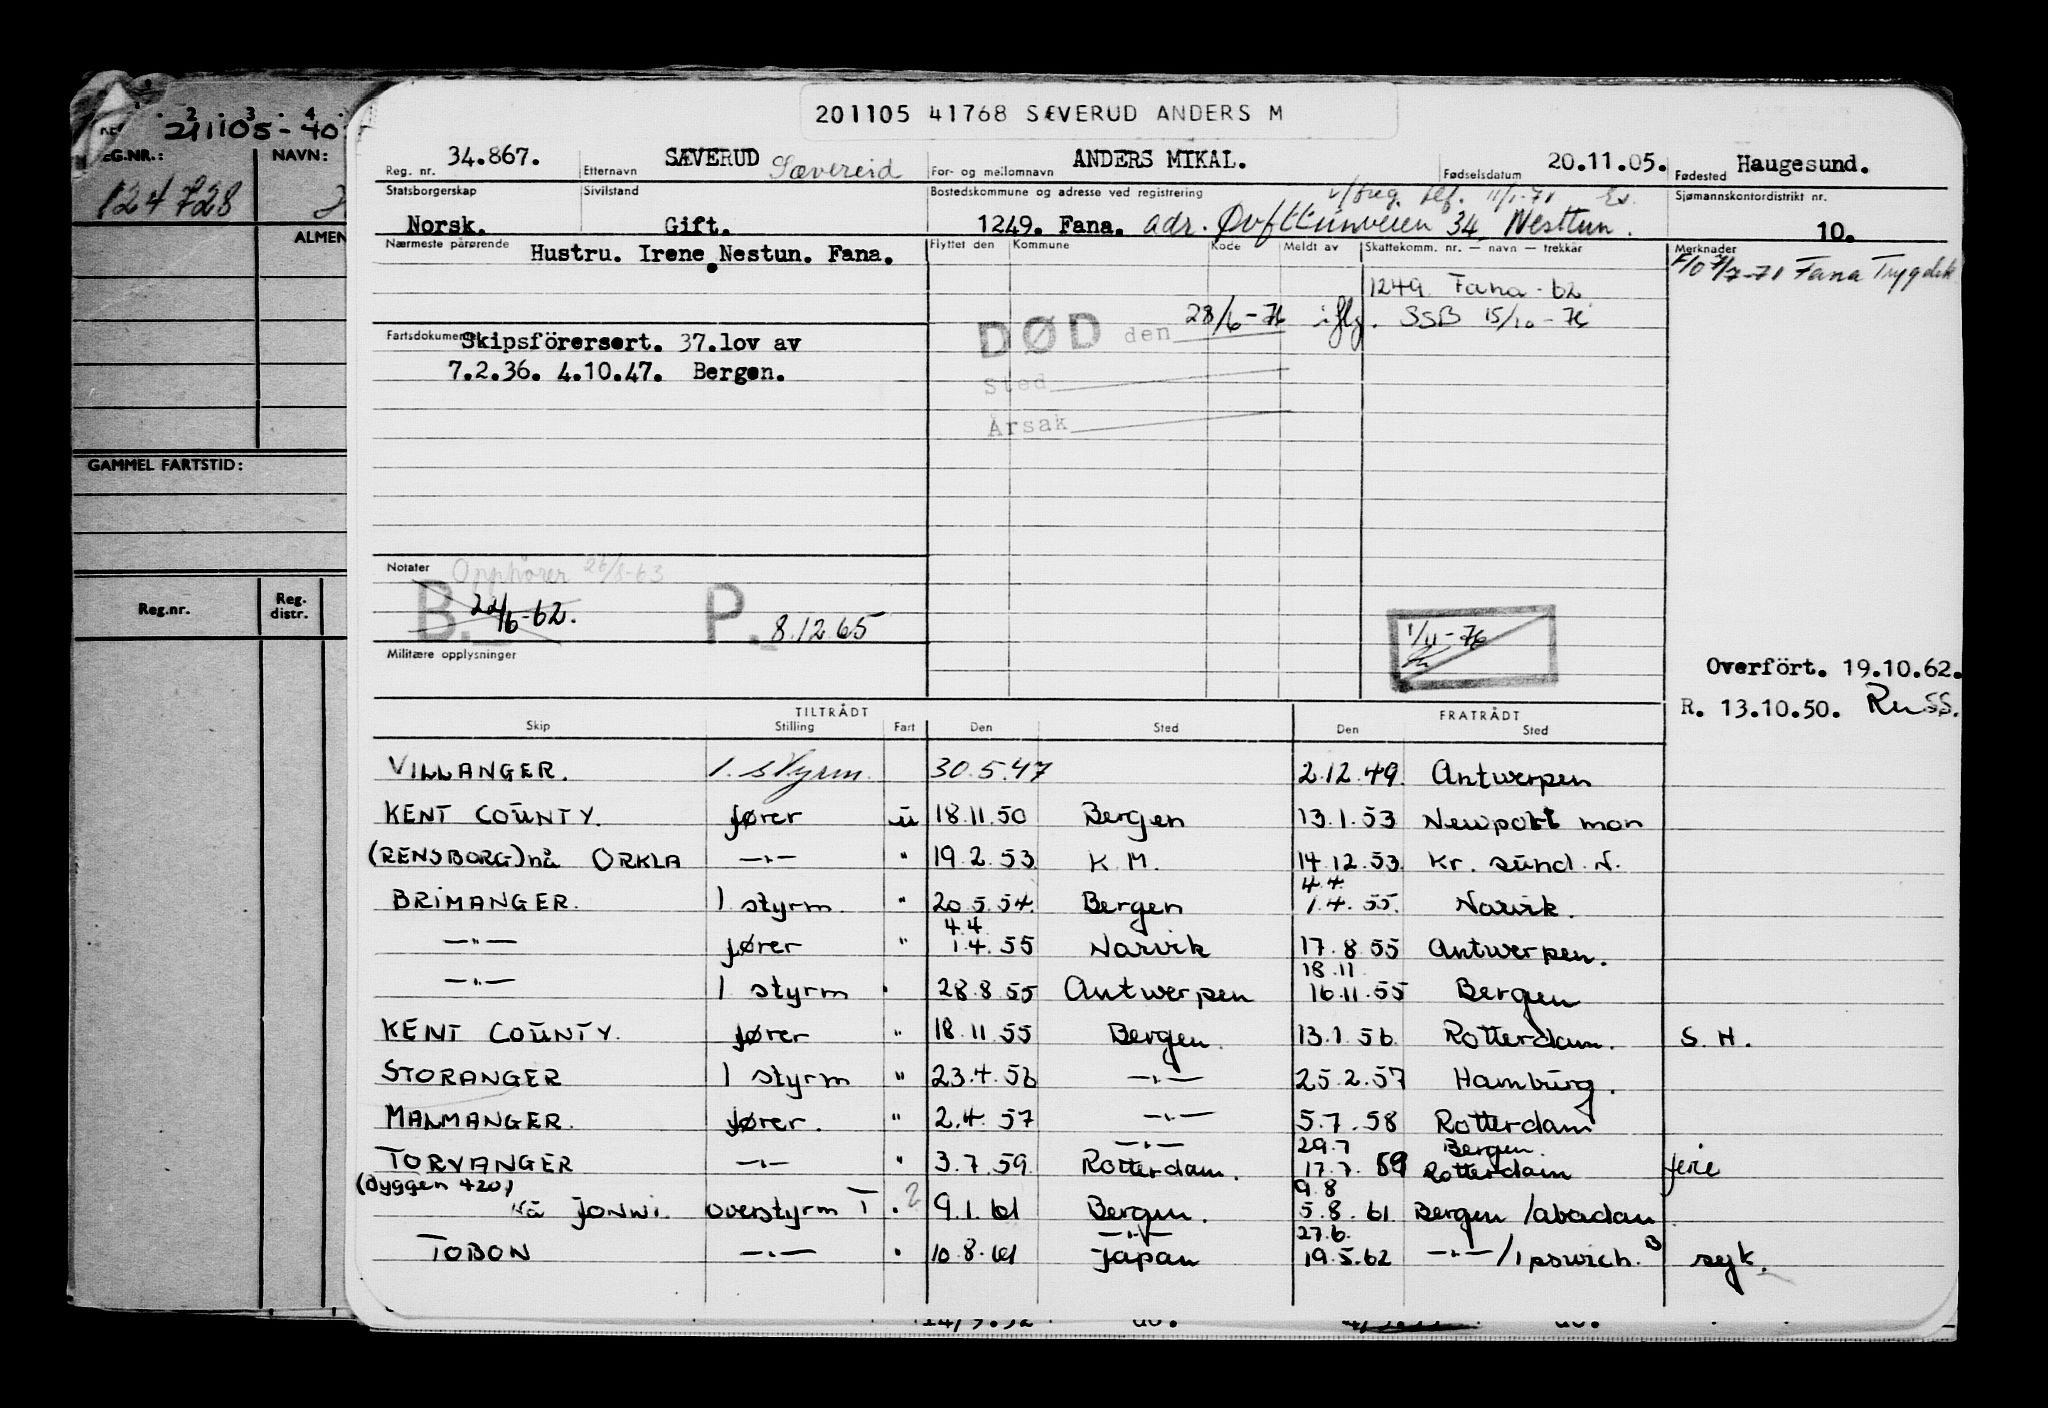 201105 41768 SÆVERUD ANDERS M
211105-40
REG.NR.: NAVN:
124728
ALMEN
GAMMEL FARTSTID:
Reg.nr. Reg. distr.
Reg. nr. 34.867. Etternavn SÆVERUD Sævereid For- og mellomnavn ANDERS MIKAL. Fødselsdatum 20.11.05. Fødested Haugesund.
Statsborgerskap Sivilstand Bostedskommune og adresse ved registrering Sjømannskontordistrikt nr.
Norsk. Gift. 1249. Fana. adr. 34 Nesttun. 10.
Nærmeste pårørende Hustru. Irene Nestun. Fana. Flyttet den Kommune Kode Meldt av Skattekomm. nr. — navn — trekkår Merknader
F/O 7/7-71 Fana Trygdek
1249 Fana - 62
DØD den 28/6-76 iflg. SSB 15/10-76
Fartsdokumenter Skipsförersert. 37.lov av
7.2.36. 4.10.47. Bergen.
Sted
Årsak
Notater Opphører 26/8-63
B. 22/6-62. P. 8.12.65
1/11-76
Militære opplysninger
Overfört. 19.10.62.
R. 13.10.50. Ru SS.
TILTRÅDT FRATRÅDT
Skip Stilling Fart Den Sted Den Sted
VILLANGER. 1. styrm. 30.5.47 2.12.49. Antwerpen
KENT COUNTY. fører u 18.11.50 Bergen 13.1.53 Newport mon
(RENSBORG) nå ORKLA —"— " 19.2.53 K M. 14.12.53. Kr. sund. N.
4.4.
BRIMANGER. 1 styrm. " 20.5.54. Bergen 1.4.55. Narvik.
4.4
—"— fører " 1.4.55 Narvik 17.8.55 Antwerpen.
18.11
—"— 1 styrm " 28.8.55 Antwerpen 16.11.55 Bergen
KENT COUNTY. fører " 18.11.55 Bergen. 13.1.56 Rotterdam. S. H.
STORANGER 1 styrm " 23.4.56 —"— 25.2.57 Hamburg.
MALMANGER. fører. " 2.4.57 —"— 5.7.58 Rotterdam
—"— 29.7 Bergen.
TORVANGER —"— " 3.7.59 Rotterdam. 17.7.59 Rotterdam ferie
(Byggen 420) 9.8
nå JONNI. overstyrm T " 2 9.1.61 Bergen. 5.8.61 Bergen /abadan
—"— 27.6.
TOBON —"— " 10.8.61 Japan 19.5.62 —"—/Ipswich. B syk.
14/9.52 do. do.